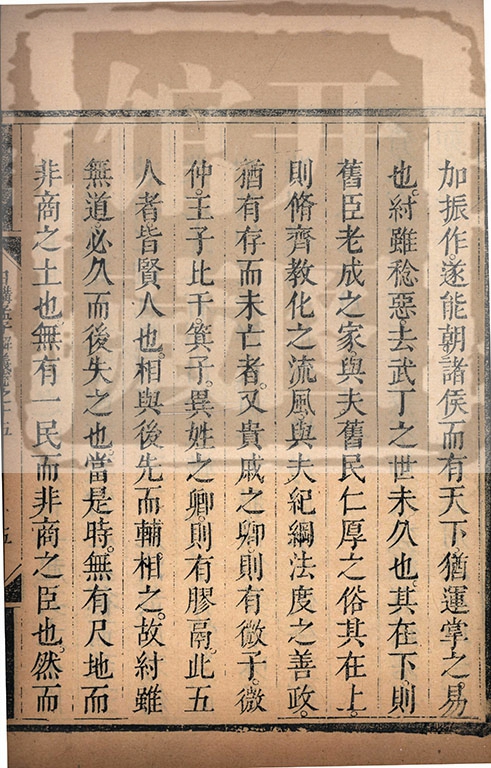 加振作。遂能朝諸侯而有天下。猶運掌之易
也。紂雖稔惡去武丁之世未久也。其在下。則
舊臣老成之家。與夫舊民仁厚之俗其在上。
則脩齊教化之流風。與夫紀綱法度之善政。
猶有存而未亡者。又貴戚之卿。則有微子。微
仲。王子比干箕子。異姓之卿。則有膠鬲。此五
人者皆賢人也。相與後先而輔相之。故紂雖
無道。必久而後失之也。當是時。無有尺地而
非商之土也無有一民而非商之臣也。然而